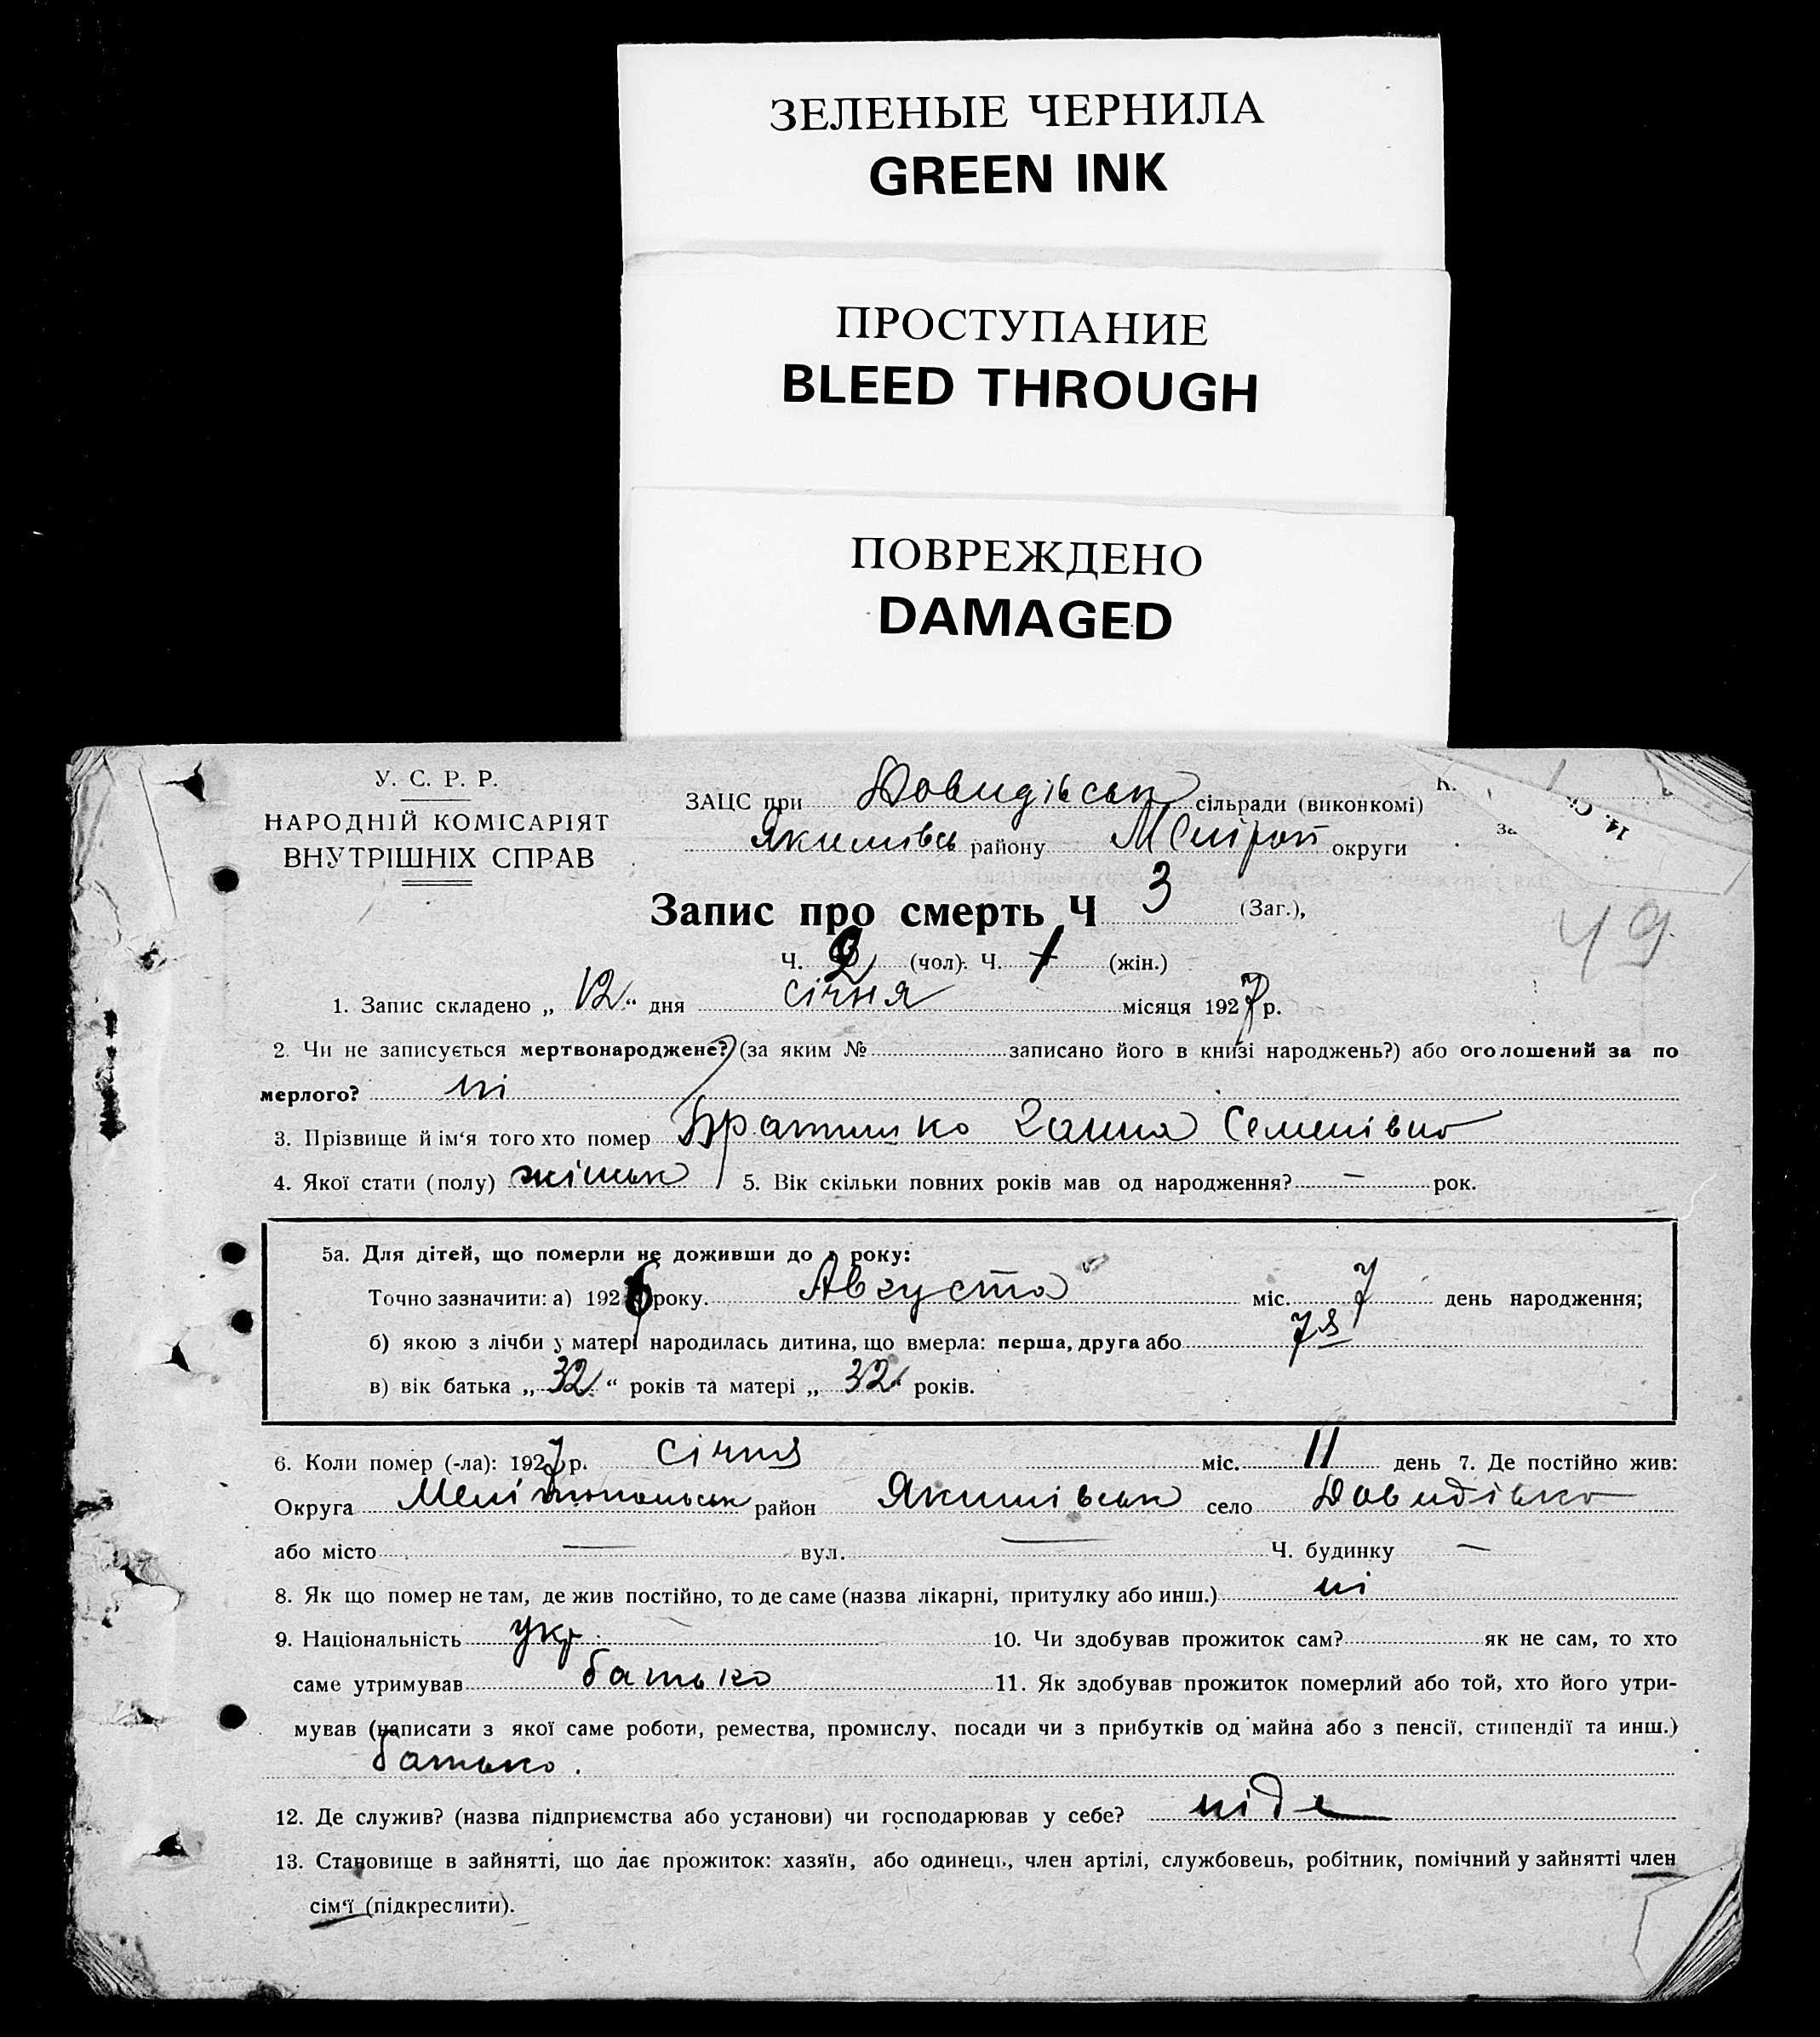 ЗЕЛЕНЫЕ ЧЕРНИЛА
GREEN INK
ПРОСТУПАНИЕ
BLEED THROUGH
ПОВРЕЖДЕНО
DAMAGED
У. С. Р. Р.
НАРОДНІЙ КОМІСАРІЯТ
ВНУТРІШНІХ СПРАВ
ЗАЦС при Давидівськ сільради (виконкомі)
Якимівсь району округи
14. С
49
Запис про смерть Ч 3 (Заг.),
Ч. 2 (чол). Ч. 1 (жін.)
1. Запис складено „ 12 “ дня січня місяця 1927 р.
2. Чи не записується мертвонароджене? (за яким № записано його в книзі народжень?) або оголошений за по
мерлого? ні
3. Прізвище й ім‘я того хто помер Братишко Ганна Семенівна
4. Якої стати (полу) жіньск 5. Вік скільки повних років мав од народження? — рок.
5а. Для дітей, що померли не доживши до 1 року:
Точно зазначити: а) 1926 року. Августа міс. 7 день народження;
б) якою з лічби у матері народилась дитина, що вмерла: перша, друга або 7я
в) вік батька „ 32 “ років та матері „ 32 “ років.
6. Коли помер (-ла): 1927 р. січня міс. 11 день 7. Де постійно жив:
Округа Мелітопольськ район Якимівськ село Давидівка
або місто — вул. — Ч. будинку —
8. Як що помер не там, де жив постійно, то де саме (назва лікарні, притулку або инш.) ні
9. Національність укр. 10. Чи здобував прожиток сам? як не сам, то хто
саме утримував батько 11. Як здобував прожиток померлий або той, хто його утри-
мував (написати з якої саме роботи, ремества, промислу, посади чи з прибутків од майна або з пенсії, стипендії та инш.)
батько.
12. Де служив? (назва підприємства або установи) чи господарював у себе? ніде
13. Становище в зайнятті, що дає прожиток: хазяїн, або одинець, член артілі, службовець, робітник, помічний у зайнятті член
сім‘ї (підкреслити).